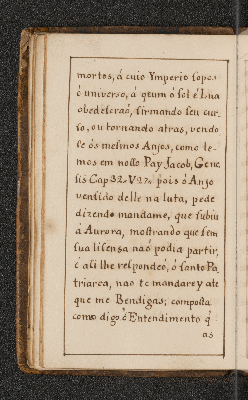 mortos, á cuio Ymperio sopos
ó universo, á qeum ó sol é Lua
obedeseraõ, firmando seu cur-
so, ou tornando atras, vendo
se ós mesmos Anjos, como le-
mos em nosso Pay Jacob, Gene
sis Cap 32. V 27. pois ó Anjo
vensido delle na luta, pede
dizendo mandame, que subiu
á Aurora, mostrando que sem
sua lisensa naõ podia partir;
é ali lhe respondeó, ó santo Pa
triarca, nao te mandarey ate
que me Bendigas; composta
como digo é Entendimento q
as